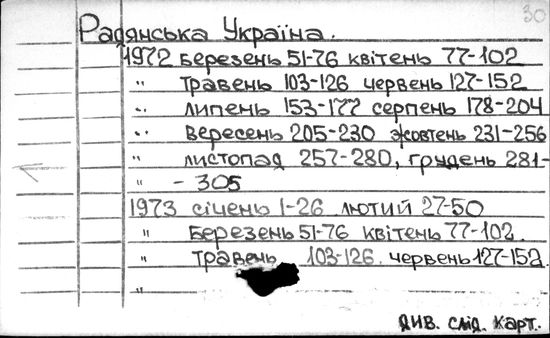 30
Радянська Україна.
1972 березень 51-76 квітень 77-102
" травень 103-126 червень 127-152
" липень 153-177 серпень 178-204
" вересень 205-230 жовтень 231-256
" листопад 257-280, грудень 281-
" - 305
1973 січень 1-26 лютий 27-50
" березень 51-76 квітень 77-102.
" травень 103-126. червень 127-152.
"
див. слід. карт.